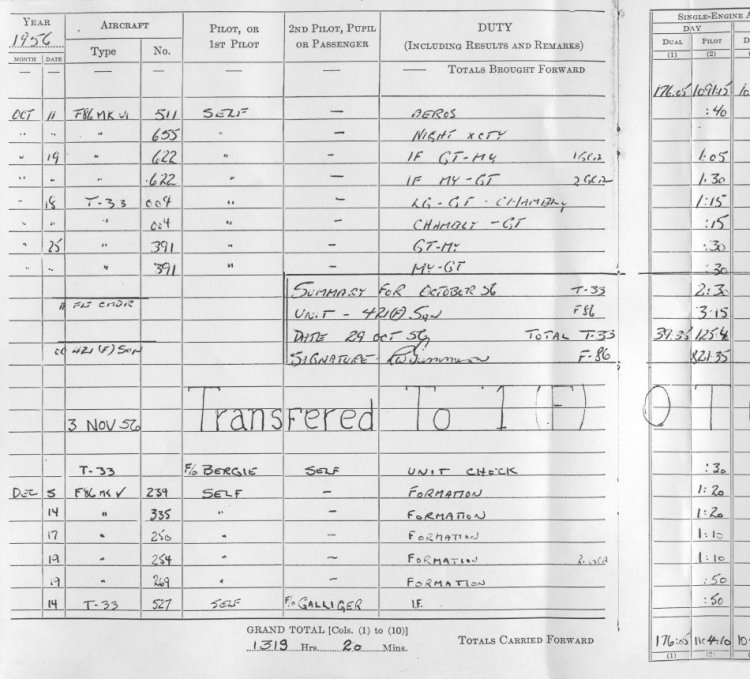 YEAR AIRCRAFT PILOT, OR 1ST PILOT 2ND PILOT, PUPIL OR PASSENGER DUTY (INCLUDING RESULTS AND REMARKS) SINGLE-ENGINE
1956 DAY
MONTH DATE Type No. DUAL PILOT
(1) (2)
— — — — — — — TOTALS BROUGHT FORWARD
176.05 1091.15
OCT 11 F86 MK VI 511 SELF — AEROS :40
" " " 655 " — NIGHT XCTY
" 19 " 622 " — IF GT-MY 1 GCA 1:05
" " " 622 " — IF MY-GT 2 GCA 1:30
" 18 T-33 004 " — LG-GT-CHAMBLY 1:15
" " " 004 " — CHAMBLY-GT :15
" 25 " 391 " — GT-MY :30
" " " 391 " — MY-GT :30
SUMMARY FOR OCTOBER 56 T-33 2:30
UNIT - 421(F) SQN F86 3:15
DATE 29 OCT 56 TOTAL T-33 39:35
OC 421(F) SQN SIGNATURE F-86 821.35
TRANSFERED TO 1 (F) OT
3 NOV 56
T-33 F/O BERGIE SELF UNIT CHECK :30
DEC 5 F86 MK V 239 SELF — FORMATION 1:20
14 " 335 " — FORMATION 1:20
17 " 250 " — FORMATION 1:10
19 " 254 " — FORMATION 2 GCA 1:10
19 " 269 " — FORMATION :50
14 T-33 527 SELF F/O GALLIGER I.F. :50
GRAND TOTAL [Cols. (1) to (10)]
1319 Hrs. 20 Mins. TOTALS CARRIED FORWARD 176:05
(1) (2)